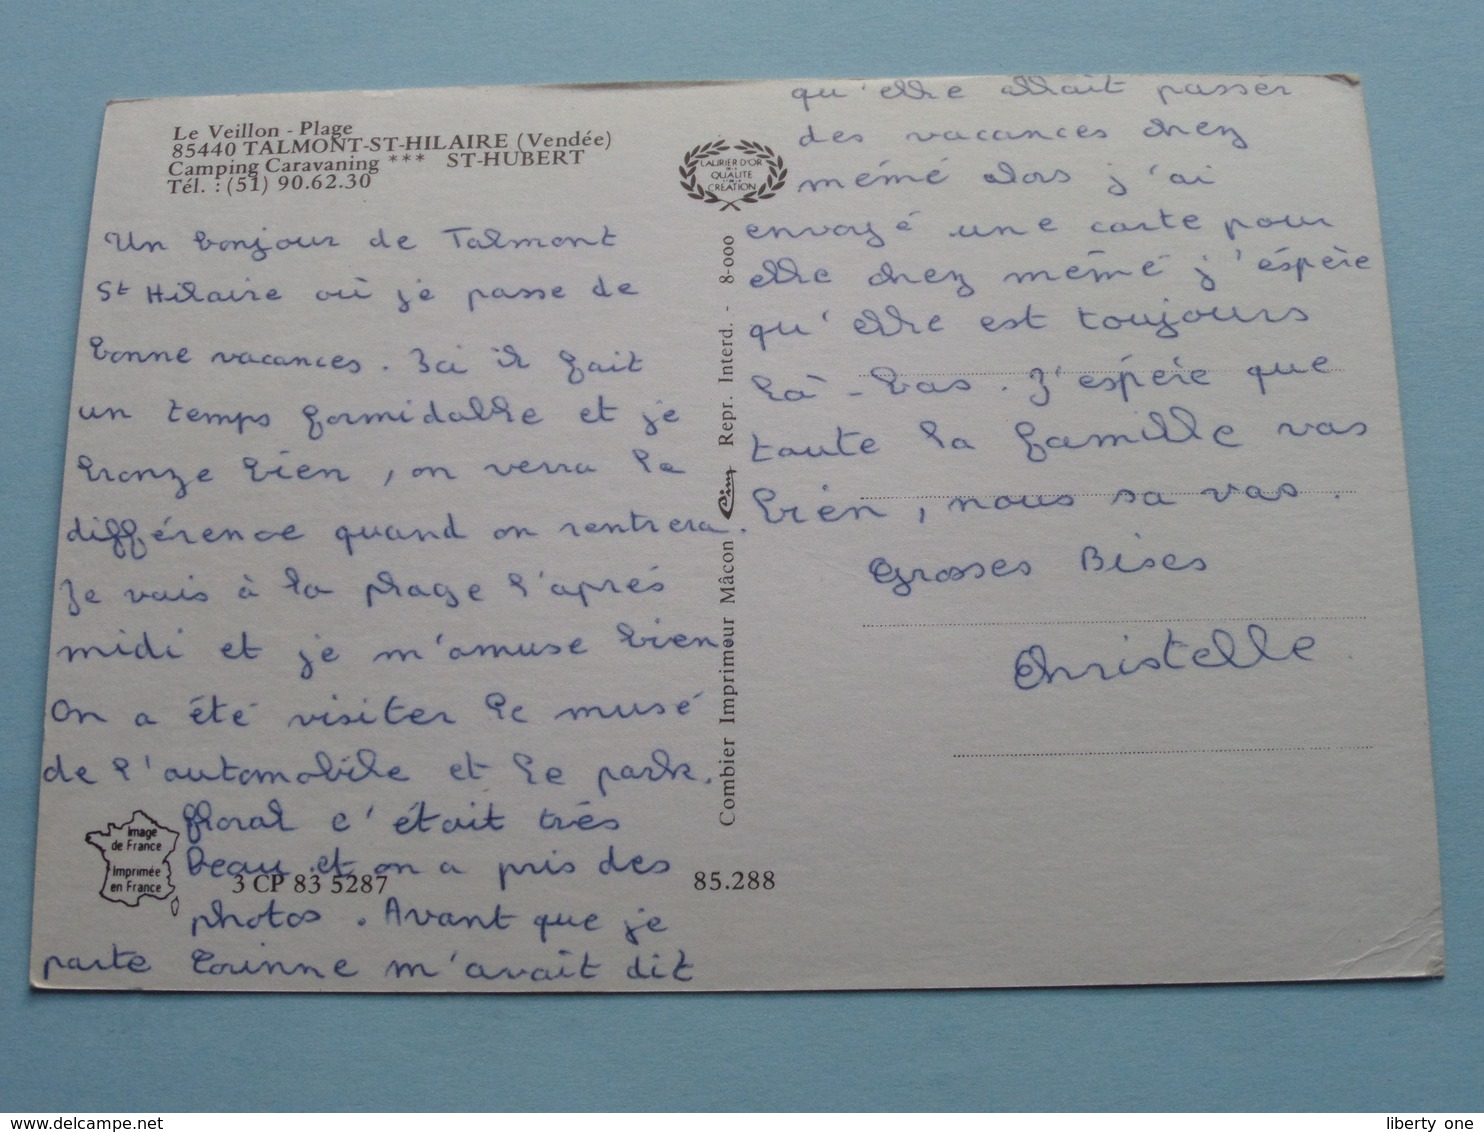 Le Veillon - Plage
85440 TALMONT-ST-HILAIRE (Vendée)
Camping Caravaning *** ST-HUBERT
Tél. : (51) 90.62.30
LAURIER D'OR
DE LA
QUALITE
CREATION
Un bonjour de Talmont
St Hilaire où je passe de
bonne vacances. Ici il fait
un temps formidable et je
bronze bien, on verra la
différence quand on rentrera.
Je vais à la plage l'après
midi et je m'amuse bien
On a été visiter le musé
de l'automobile et le park.
floral c'était très
beau et on a pris des
photos. Avant que je
parte Corinne m'avait dit
Image
de France
Imprimée
en France
3 CP 83 5287
85.288
Combier Imprimeur Mâcon Cim Repr. Interd. - 8-000
qu'elle allait passer
des vacances chez
mémé alors j'ai
envoyé une carte pour
elle chez mémé j'éspère
qu'elle est toujours
là-bas. J'éspère que
toute la famille vas
bien, nous sa vas.
Grosses Bises
Christelle
liberty one